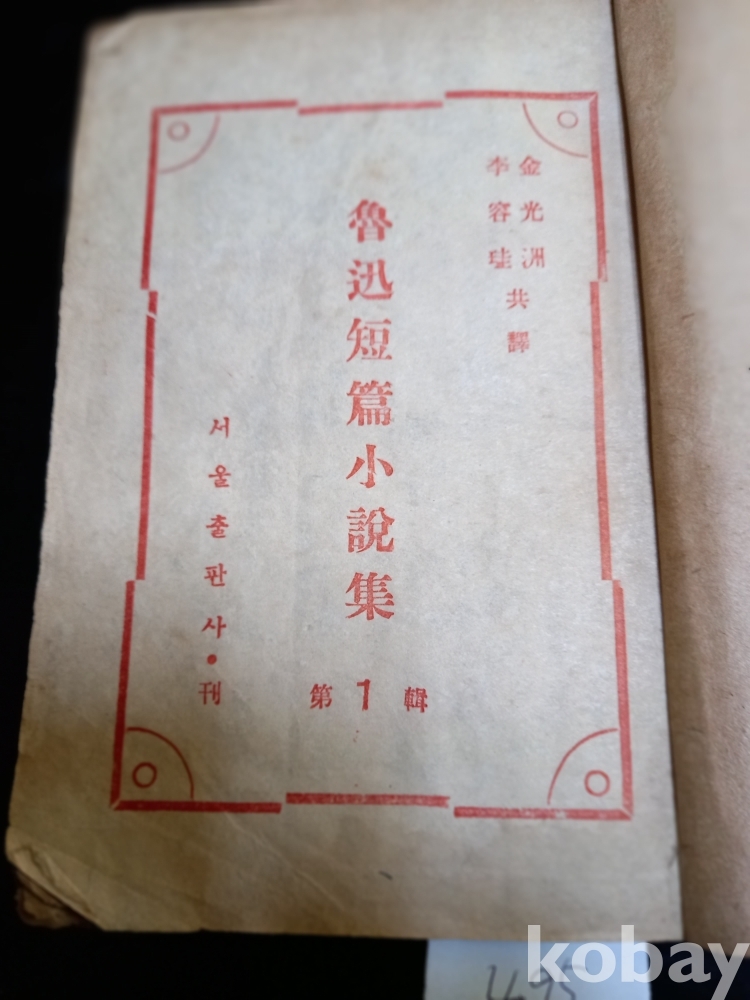 金光洲
李容珪
共譯
魯迅短篇小說集
第1輯
서울출판사・刊
kobay